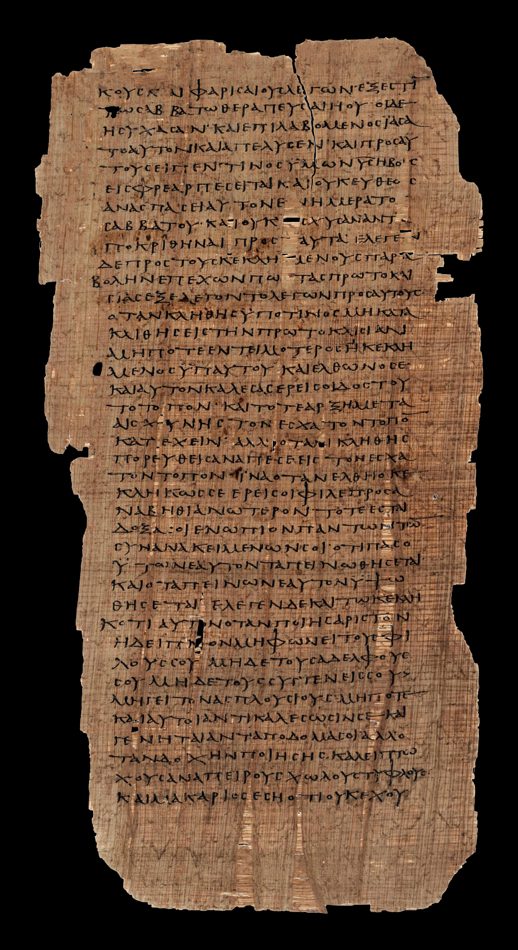 ΚΟΥϹ ΚΑΙ ΦΑΡΙϹΑΙΟΥϹ ΛΕΓΩΝ ΕΞΕϹΤΙ
ΤΩ ϹΑΒΒΑΤΩ ΘΕΡΑΠΕΥϹΑΙ Η ΟΥ ΟΙ ΔΕ
ΗϹΥΧΑϹΑΝ· ΚΑΙ ΕΠΙΛΑΒΟΜΕΝΟϹ ΙΑϹΑ
ΤΟ ΑΥΤΟΝ ΚΑΙ ΑΠΕΛΥϹΕΝ· ΚΑΙ ΠΡΟϹ ΑΥ
ΤΟΥϹ ΕΙΠΕΝ· ΤΙΝΟϹ ΥΜΩΝ ΥϹ Η ΒΟΥϹ
ΕΙϹ ΦΡΕΑΡ ΠΕϹΕΙΤΑΙ ΚΑΙ ΟΥΚ ΕΥΘΕΩϹ
ΑΝΑϹΠΑϹΕΙ ΑΥΤΟΝ ΕΝ ΗΜΕΡΑ ΤΟΥ
ϹΑΒΒΑΤΟΥ· ΚΑΙ ΟΥΚ ΙϹΧΥϹΑΝ ΑΝΤΑ
ΠΟΚΡΙΘΗΝΑΙ ΠΡΟϹ ΤΑΥΤΑ· ΕΛΕΓΕΝ
ΔΕ ΠΡΟϹ ΤΟΥϹ ΚΕΚΛΗΜΕΝΟΥϹ ΠΑΡΑ
ΒΟΛΗΝ ΕΠΕΧΩΝ ΠΩϹ ΤΑϹ ΠΡΩΤΟΚΛΙ
ϹΙΑϹ ΕΞΕΛΕΓΟΝΤΟ ΛΕΓΩΝ ΠΡΟϹ ΑΥΤΟΥϹ
ΟΤΑΝ ΚΛΗΘΗϹ ΥΠΟ ΤΙΝΟϹ ΜΗ ΚΑΤΑ
ΚΛΙΘΗϹ ΕΙϹ ΤΗΝ ΠΡΩΤΟΚΛΙϹΙΑΝ
ΜΗΠΟΤΕ ΕΝΤΕΙΜΟΤΕΡΟϹ ϹΟΥ ΗΚΕΚΛΗ
ΜΕΝΟϹ ΥΠ ΑΥΤΟΥ· ΚΑΙ ΕΛΘΩΝ Ο ϹΕ
ΚΑΙ ΑΥΤΟΝ ΚΑΛΕϹΑϹ ΕΡΕΙ ϹΟΙ ΔΟϹ ΤΟΥ
ΤΩ ΤΟΠΟΝ· ΚΑΙ ΤΟΤΕ ΑΡΞΗ ΜΕΤΑ
ΑΙϹΧΥΝΗϹ ΤΟΝ ΕϹΧΑΤΟΝ ΤΟΠΟΝ
ΚΑΤΕΧΕΙΝ· ΑΛΛ ΟΤΑΝ ΚΛΗΘΗϹ
ΠΟΡΕΥΘΕΙϹ ΑΝΑΠΕϹΕ ΕΙϹ ΤΟΝ ΕϹΧΑ
ΤΟΝ ΤΟΠΟΝ ΙΝΑ ΟΤΑΝ ΕΛΘΗ Ο ΚΕ
ΚΛΗΚΩϹ ϹΕ ΕΡΕΙ ϹΟΙ ΦΙΛΕ ΠΡΟϹΑ
ΝΑΒΗΘΙ ΑΝΩΤΕΡΟΝ· ΤΟΤΕ ΕϹΤΑΙ
ΔΟΞΑ ϹΟΙ ΕΝΩΠΙΟΝ ΠΑΝΤΩΝ ΤΩ
ϹΥΝΑΝΑΚΕΙΜΕΝΩΝ ϹΟΙ· ΟΤΙ ΠΑϹ Ο
ΥΨΩΝ ΕΑΥΤΟΝ ΤΑΠΕΙΝΩΘΗϹΕΤΑΙ
ΚΑΙ Ο ΤΑΠΕΙΝΩΝ ΕΑΥΤΟΝ ΥΨΩ
ΘΗϹΕΤΑΙ· ΕΛΕΓΕΝ ΔΕ ΚΑΙ ΤΩ ΚΕΚΛΗ
ΚΟΤΙ ΑΥΤΟΝ ΟΤΑΝ ΠΟΙΗϹ ΑΡΙϹΤΟΝ
Η ΔΕΙΠΝΟΝ ΜΗ ΦΩΝΕΙ ΤΟΥϹ ΦΙ
ΛΟΥϹ ϹΟΥ ΜΗΔΕ ΤΟΥϹ ΑΔΕΛΦΟΥϹ
ϹΟΥ ΜΗΔΕ ΤΟΥϹ ϹΥΓΓΕΝΕΙϹ ϹΟΥ
ΜΗ ΓΕΙΤΟΝΑϹ ΠΛΟΥϹΙΟΥϹ ΜΗΠΟΤΕ
ΚΑΙ ΑΥΤΟΙ ΑΝΤΙΚΑΛΕϹΩϹΙΝ ϹΕ ΚΑΙ
ΓΕΝΗΤΑΙ ΑΝΤΑΠΟΔΟΜΑ ϹΟΙ ΑΛΛ Ο
ΤΑΝ ΔΟΧΗΝ ΠΟΙΗϹΗϹ ΚΑΛΕΙ ΠΤΩ
ΧΟΥϹ ΑΝΑΠΕΙΡΟΥϹ ΧΩΛΟΥϹ ΤΥΦΛΟΥϹ
ΚΑΙ ΜΑΚΑΡΙΟϹ ΕϹΗ ΟΤΙ ΟΥΚ ΕΧΟΥ